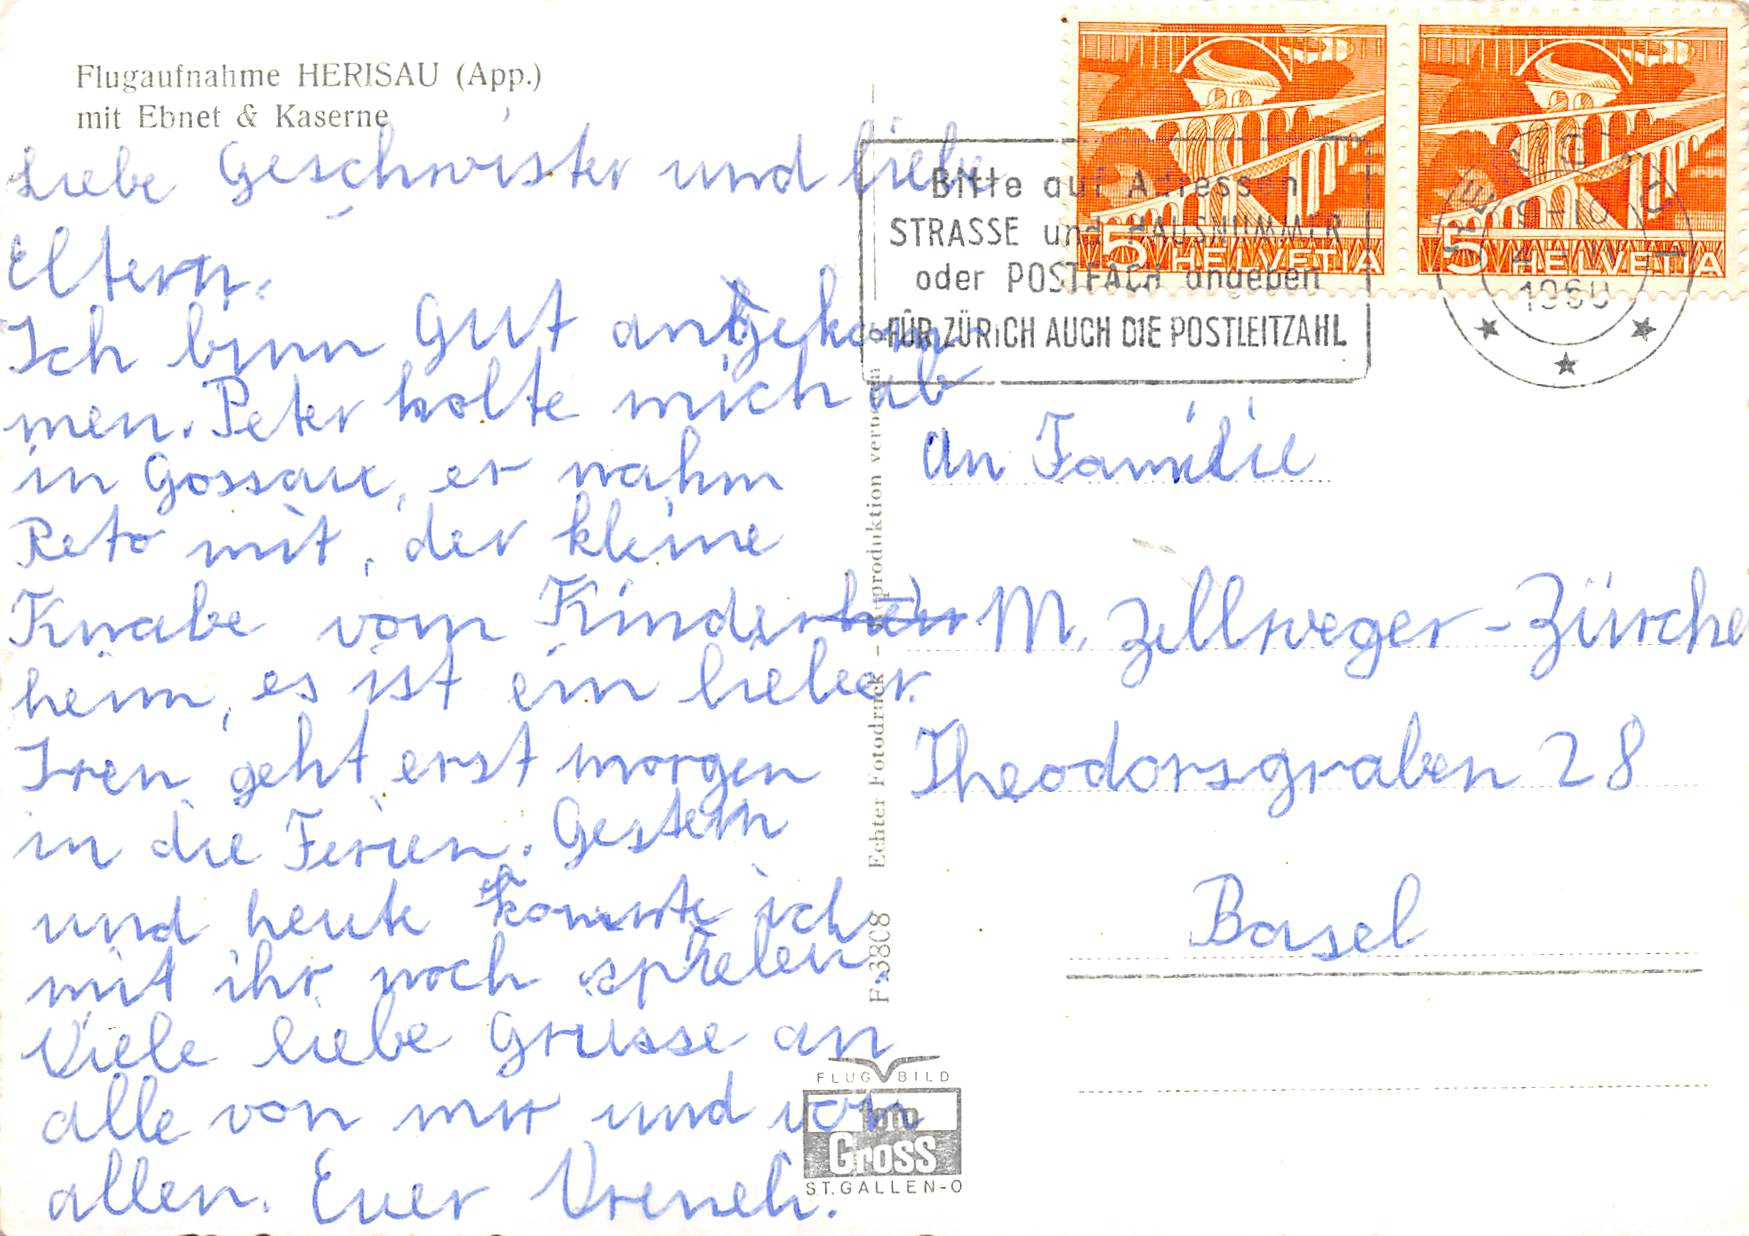 Flugaufnahme HERISAU (App.)
mit Ebnet & Kaserne
Liebe Geschwister und liebe
Eltern.
Ich binn gut angekom-
men. Peter holte mich ab
in Gossau, er nahm
Reto mit, der kleine
Knabe vom Kinder
heim, es ist ein lieber.
Iren geht erst morgen
in die Ferien. Gestern
und heute konnte ich
mit ihr noch spielen
Viele liebe Grüsse an
alle von mir und von
allen. Euer Vreneli.
Echter Fotodruck - Reproduktion verboten
F.3808
FLUG BILD
foto
Gross
ST. GALLEN-O
HELVETIA 5
HELVETIA 5
Bitte auf Adressen
STRASSE und HAUSNUMMER
oder POSTFACH angeben
FÜR ZÜRICH AUCH DIE POSTLEITZAHL
9-10
1960
An Familie
M. Zellweger-Zürche
Theodorsgraben 28
Basel